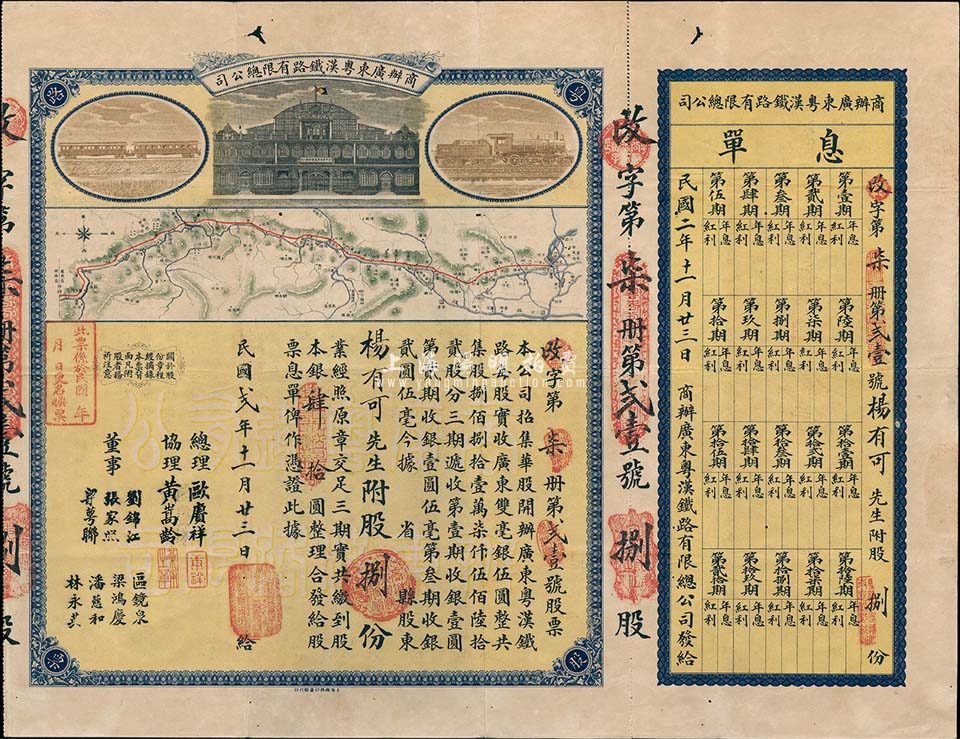 商辦廣東粤漢鐵路有限總公司
粤
路
股
改字第柒册第弍壹號股票
本公司招集華股開辦廣東粤漢鐵
路每股實收廣東雙毫銀伍圓整共
集股捌佰捌拾壹萬柒仟伍佰陸拾
貳股分三期遞收第壹期收銀壹圓
第貳期收銀壹圓伍毫第叁期收銀
貳圓伍毫今據 省 縣股東
楊有可先生附股捌份
業經照原章交足三期實共繳到股
本銀肆拾圓整理合發給股
票息單俾作憑證此據
民國弍年十一月廿三日 給
關於股
份章程
經摘錄
本票背
面凡附
股者務
祈注意
此票係於民國 年
月 日更名換票
總理 歐賡祥
協理 黃嵩齡
董事
劉錦江
張家照
區鏡泉
梁鴻慶
潘慈和
改字第柒册第弍壹號 捌股
商辦廣東粤漢鐵路有限總公司
息單
改字第柒册第弍壹號楊有可先生附股捌份
第壹期 年息 紅利
第貳期 年息 紅利
第叁期 年息 紅利
第肆期 年息 紅利
第伍期 年息 紅利
第陸期 年息 紅利
第柒期 年息 紅利
第捌期 年息 紅利
第玖期 年息 紅利
第拾期 年息 紅利
第拾壹期 年息 紅利
第拾弍期 年息 紅利
第拾叁期 年息 紅利
第拾肆期 年息 紅利
第拾伍期 年息 紅利
第拾陸期 年息 紅利
第拾柒期 年息 紅利
第拾捌期 年息 紅利
第拾玖期 年息 紅利
第貳拾期 年息 紅利
民國二年十一月廿三日 商辦廣東粤漢鐵路有限總公司發給